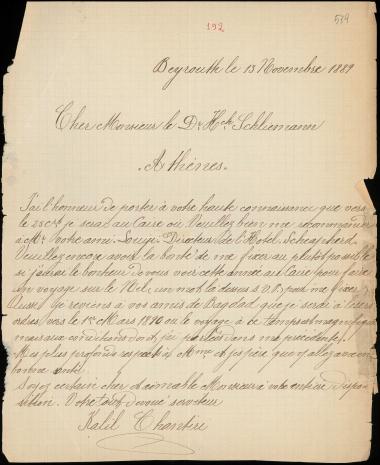 192
534
Beyrouth le 13 Novembre 1889
Cher Monsieur le Dr Hch Schliemann
Athènes.
J'ai l'honneur de porter à votre haute connaissance que vers
le 25 crt je serai au Caire où Veuillez bien me recommander
à Mr votre ami Directeur de l'Hotel
Veuillez encore avoir la bonté de me fixer au plutôt possible
si j'aurai le bonheur de vous voir cette année au Caire pour faire
un voyage sur le Nil, un mot là dessus S.V.P. pour me fixer
Aussi je reviens à vos amis de Bagdad que je serai à leurs
ordres vers le 1er Mars 1890 ou le voyage à ce temps est magnifique
mais aux conditions dont j'ai parlé dans ma précédente.
Mes plus profonds respects à Mme et j'espère que
bonne santé.
Soyez certain cher et aimable Monsieur à votre entière dispo
sition. Votre tout dévoué serviteur
Kalil Chantire